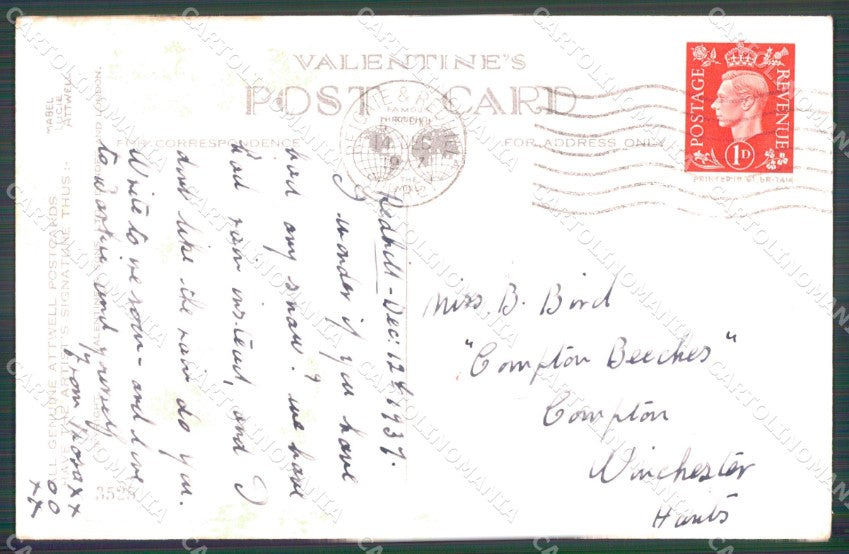 VALENTINE'S
POST CARD
FOR CORRESPONDENCE
FOR ADDRESS ONLY
POSTAGE
REVENUE
1D
PRINTED IN GT. BRITAIN
MABEL
LUCIE
ATTWELL
ALL GENUINE ATTWELL POSTCARDS
HAVE THIS ARTIST'S SIGNATURE THUS:-
3528
Redhill - Dec: 12th 1937.
I wonder if you have
had any snow? we have
had rain instead, and I
dont like the rain do you.
Write to me soon - and love
to and yourself
from xx
oo
xx
Miss B. Bird
"Compton Beeches"
Compton
Winchester
Hants
CARTOLINOMANIA